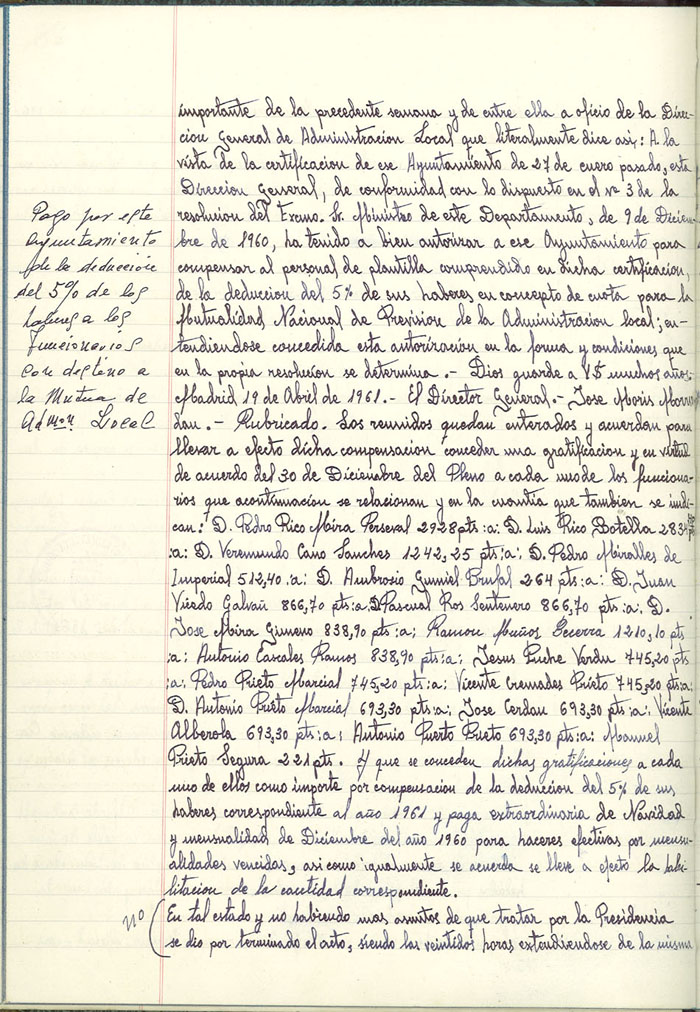 importante de la precedente semana y de entre ella a oficio de la Direc-
cion General de Administracion Local que literalmente dice asi: A la
vista de la certificacion de ese Ayuntamiento de 27 de enero pasado, esta
Direccion General, de conformidad con lo dispuesto en el nº 3 de la
resolucion del Excmo. Sr. Ministro de este Departamento, de 9 de Diciem-
bre de 1960, ha tenido a bien autorizar a ese Ayuntamiento para
compensar al personal de plantilla comprendido en dicha certificacion,
de la deduccion del 5% de sus haberes en concepto de cuota para la
Mutualidad Nacional de Prevision de la Administracion local; en-
tendiendose concedida esta autorizacion en la forma y condiciones que
en la propia resolucion se determina.- Dios guarde a V$ muchos años.
Madrid 19 de Abril de 1961.- El Director General.- Jose Moris Marro
dan.- Rubricado. Los reunidos quedan enterados y acuerdan para
llevar a efecto dicha compensacion conceder una gratificacion y en virtud
de acuerdo del 30 de Diciembre del Pleno a cada uno de los funciona-
rios que acontinuacion se relacionan y en la cuantia que tambien se indi-
can: D. Pedro Rico Mira Perseval 2928 pts :a: D. Luis Rico Botella
:a: D. Veremundo Cano Sanches 1242,25 pts :a: D. Pedro Miralles de
Imperial 512,40 :a: D. Ambrosio Gumiel Brufal 264 pts :a: D. Juan
Viedo Galvañ 866,70 pts :a: D Pascual Ros Sentenero 866,70 pts :a: D.
Jose Mira Gimeno 838,90 pts :a: Ramon Muños Becerra 1210,10 pts
:a: Antonio Cascales Ramos 838,90 pts :a: Jesus Puche Verdu 745,20 pts
:a: Pedro Prieto Marcial 745,20 pts :a: Vicente Cremades Prieto 745,20 pts :a:
D. Antonio Prieto Marcial 693,30 pts :a: Jose Cerdan 693,30 pts :a: Vicente
Alberola 693,30 pts :a: Antonio Puerto Prieto 693,30 pts :a: Manuel
Prieto Segura 221 pts. Y que se conceden dichas gratificaciones a cada
uno de ellos como importe por compensacion de la deduccion del 5% de sus
haberes correspondiente al año 1961 y paga extraordinaria de Navidad
y mensualidad de Diciembre del año 1960 para haceres efectivas por mensu-
alidades vencidas, asi como igualmente se acuerda se lleve a efecto la habi-
litacion de la cantidad correspondiente.
En tal estado y no habiendo mas asuntos de que tratar por la Presidencia
se dio por terminado el acto, siendo las veintidos horas extendiendose de la misma
Pago por este
Ayuntamiento
de la deducción
del 5% de los
haberes a los
funcionarios
con destino a
la Mutua de
Admon Local
no